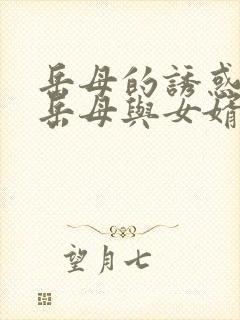 岳母的誘惑
岳母與女婿
望月七